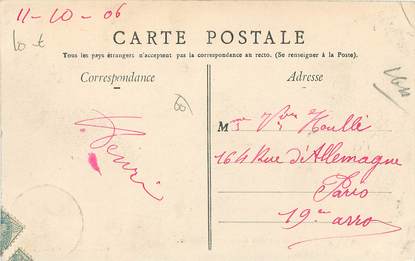 11-10-06
CARTE POSTALE
Tous les pays étrangers n'acceptent pas la correspondance au recto. (Se renseigner à la Poste).
Correspondance
Adresse
Henri
Mme Houllé
164 Rue d'Allemagne
Paris
19e arro